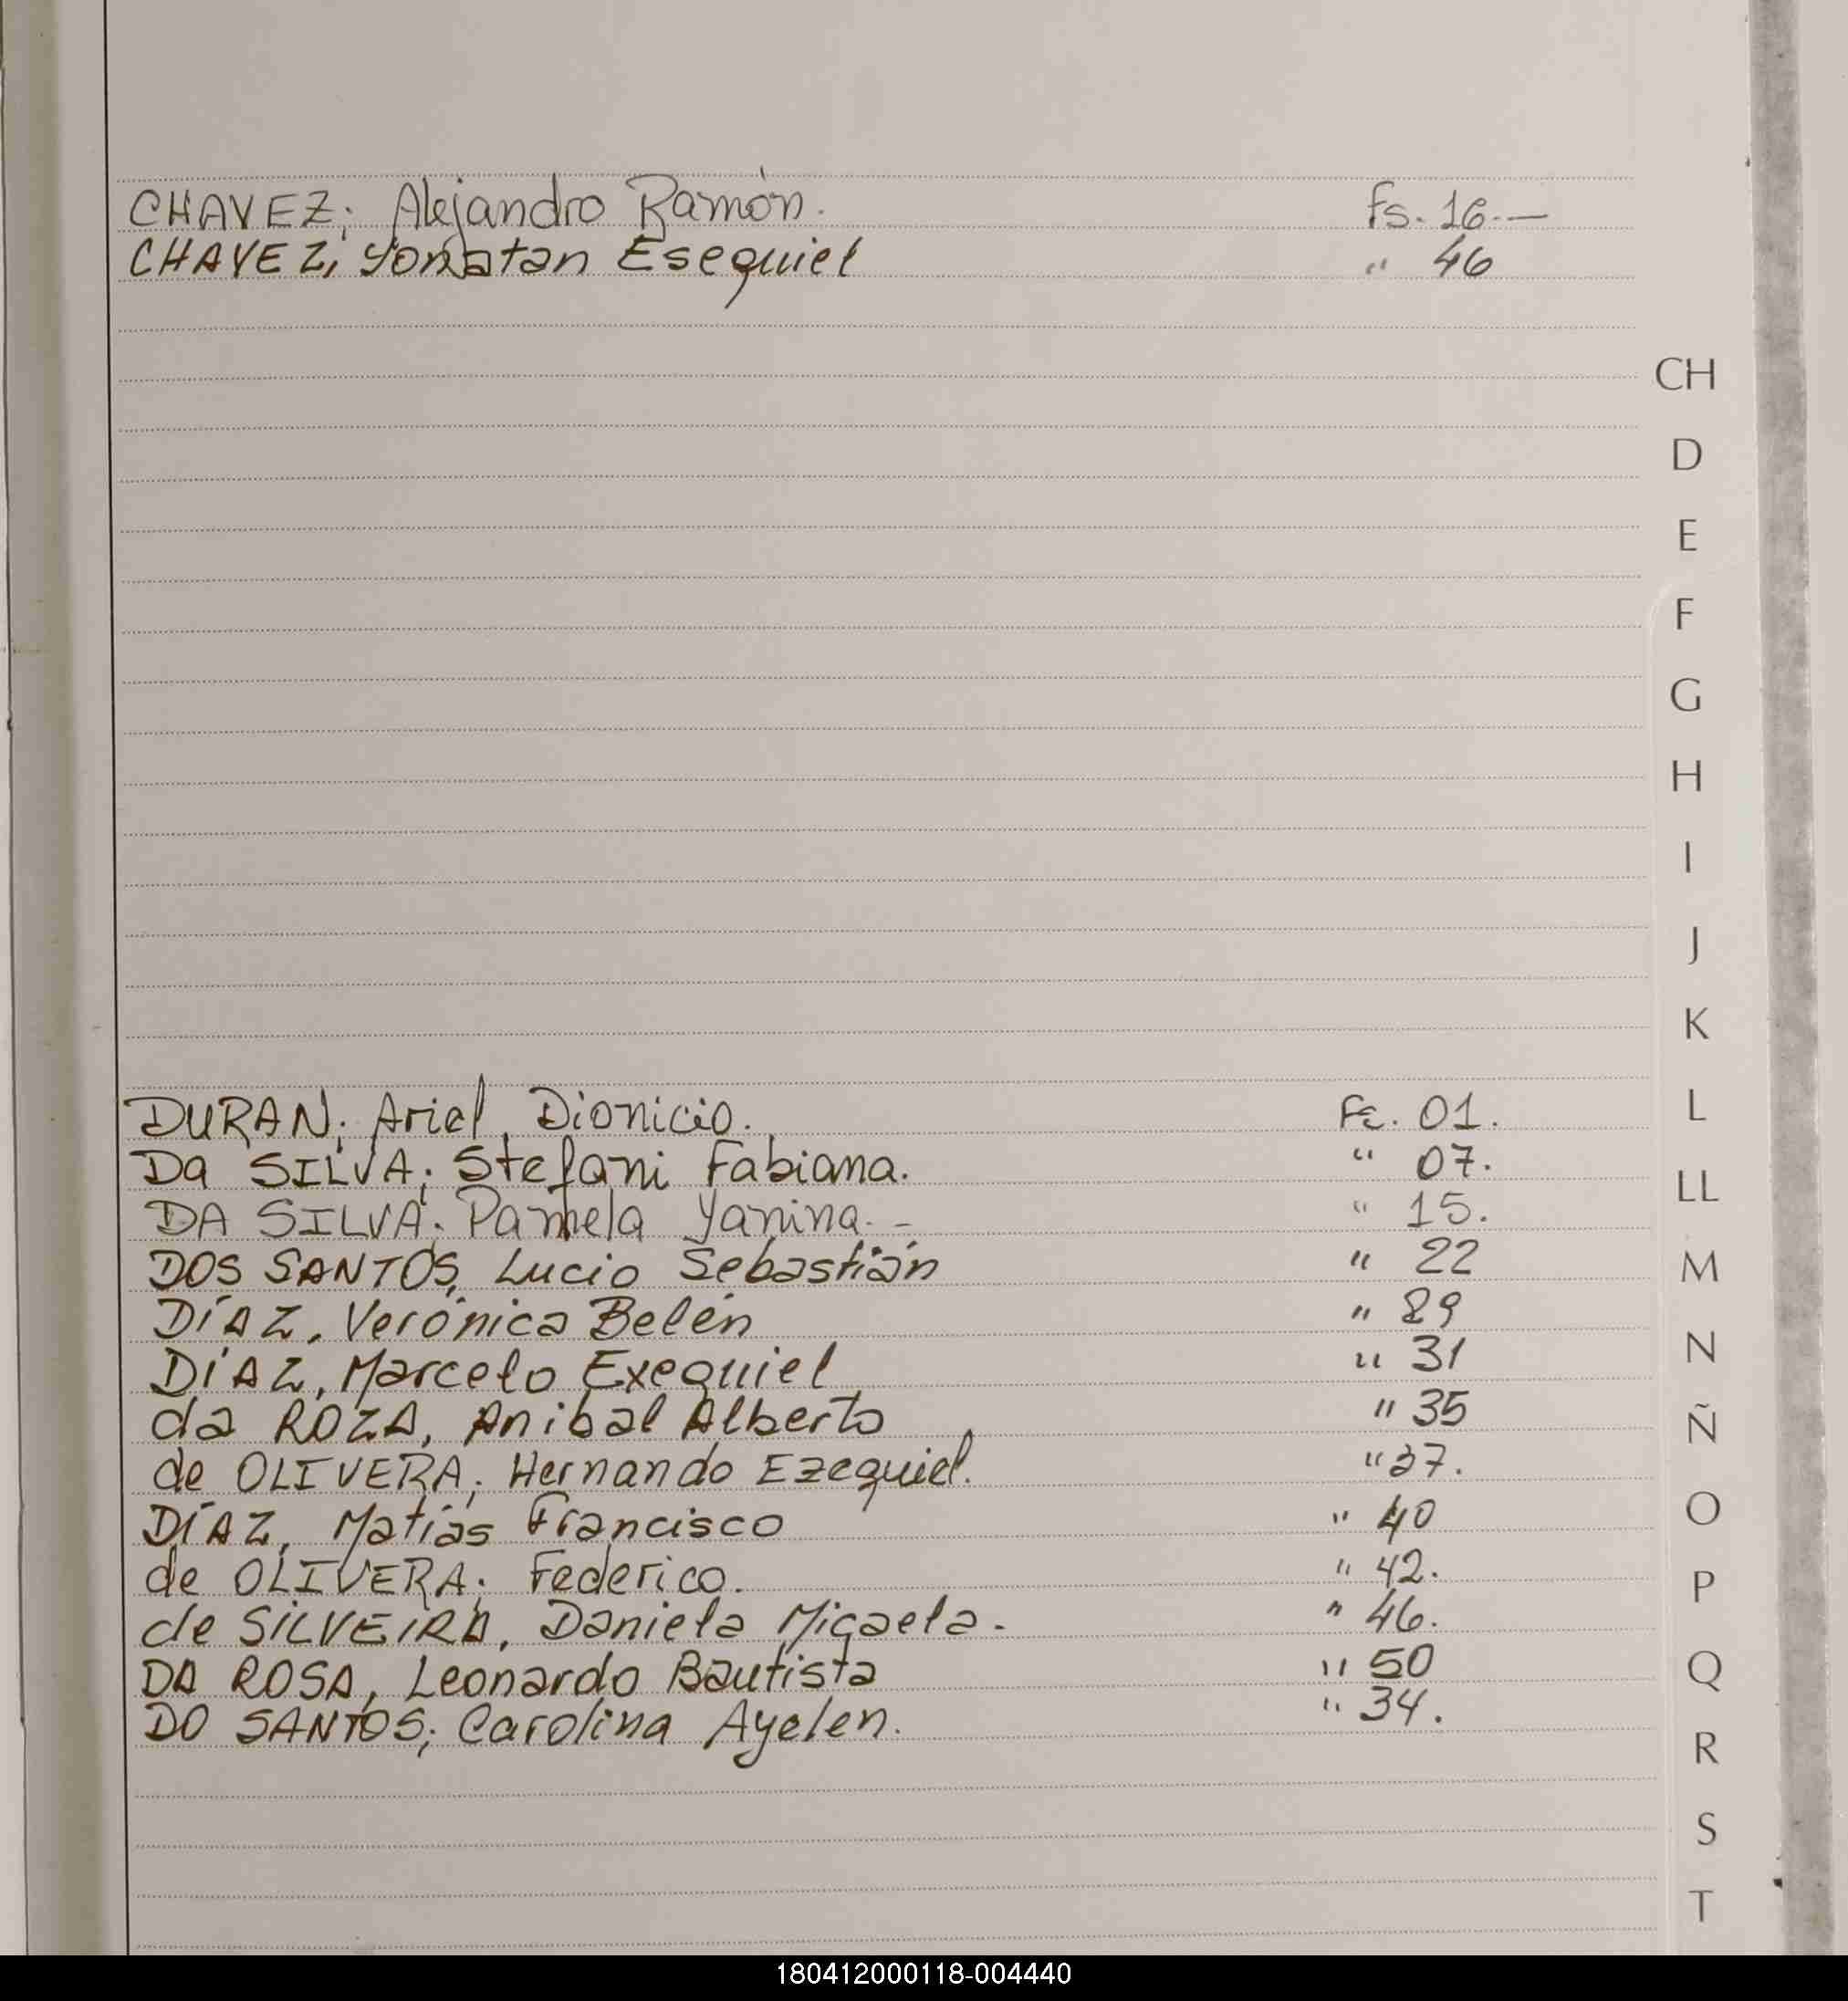 CHAVEZ; Alejandro Ramón. Fs. 16.—
CHAVEZ, Yonatan Esequiel " 46
CH
D
E
F
G
H
I
J
K
DURAN; Ariel Dionicio. Fs. 01.
L
Da SILVA; Stefani Fabiana. " 07.
LL
DA SILVA; Pamela Yanina.- " 15.
DOS SANTOS, Lucio Sebastián " 22
M
DÍAZ, Verónica Belén " 29
DÍAZ, Marcelo Exequiel " 31
N
da ROZA, Anibal Alberto " 35
Ñ
de OLIVERA; Hernando Ezequiel. " 37.
DÍAZ, Matías Francisco " 40
O
de OLIVERA; Federico. " 42.
P
de SILVEIRA, Daniela Micaela. " 46.
DA ROSA, Leonardo Bautista " 50
Q
DO SANTOS; Carolina Ayelen. " 34.
R
S
T
180412000118-004440